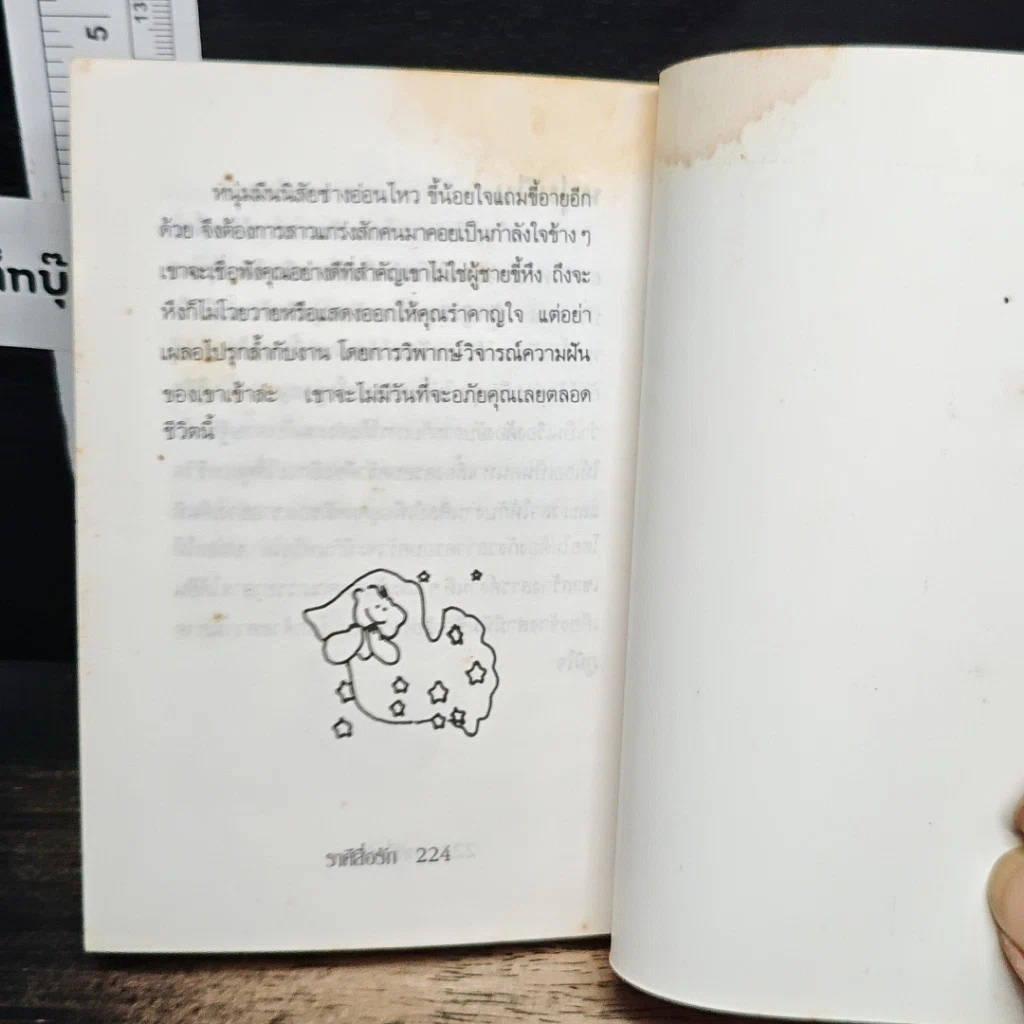 5
13
็กบุ๊
หนุ่มมีนนิสัยช่างอ่อนไหว ขี้น้อยใจแถมขี้อายอีก
ด้วย จึงต้องการสาวแกร่งสักคนมาคอยเป็นกำลังใจข้างๆ
เขาจะเชื่อฟังคุณอย่างดีที่สำคัญเขาไม่ใช่ผู้ชายขี้หึง ถึงจะ
หึงก็ไม่โวยวายหรือแสดงออกให้คุณรำคาญใจ แต่อย่า
เผลอไปรุกล้ำกับงาน โดยการวิพากษ์วิจารณ์ความฝัน
ของเขาเข้าล่ะ เขาจะไม่มีวันที่จะอภัยคุณเลยตลอด
ชีวิตนี้
ราศีสื่อรัก 224